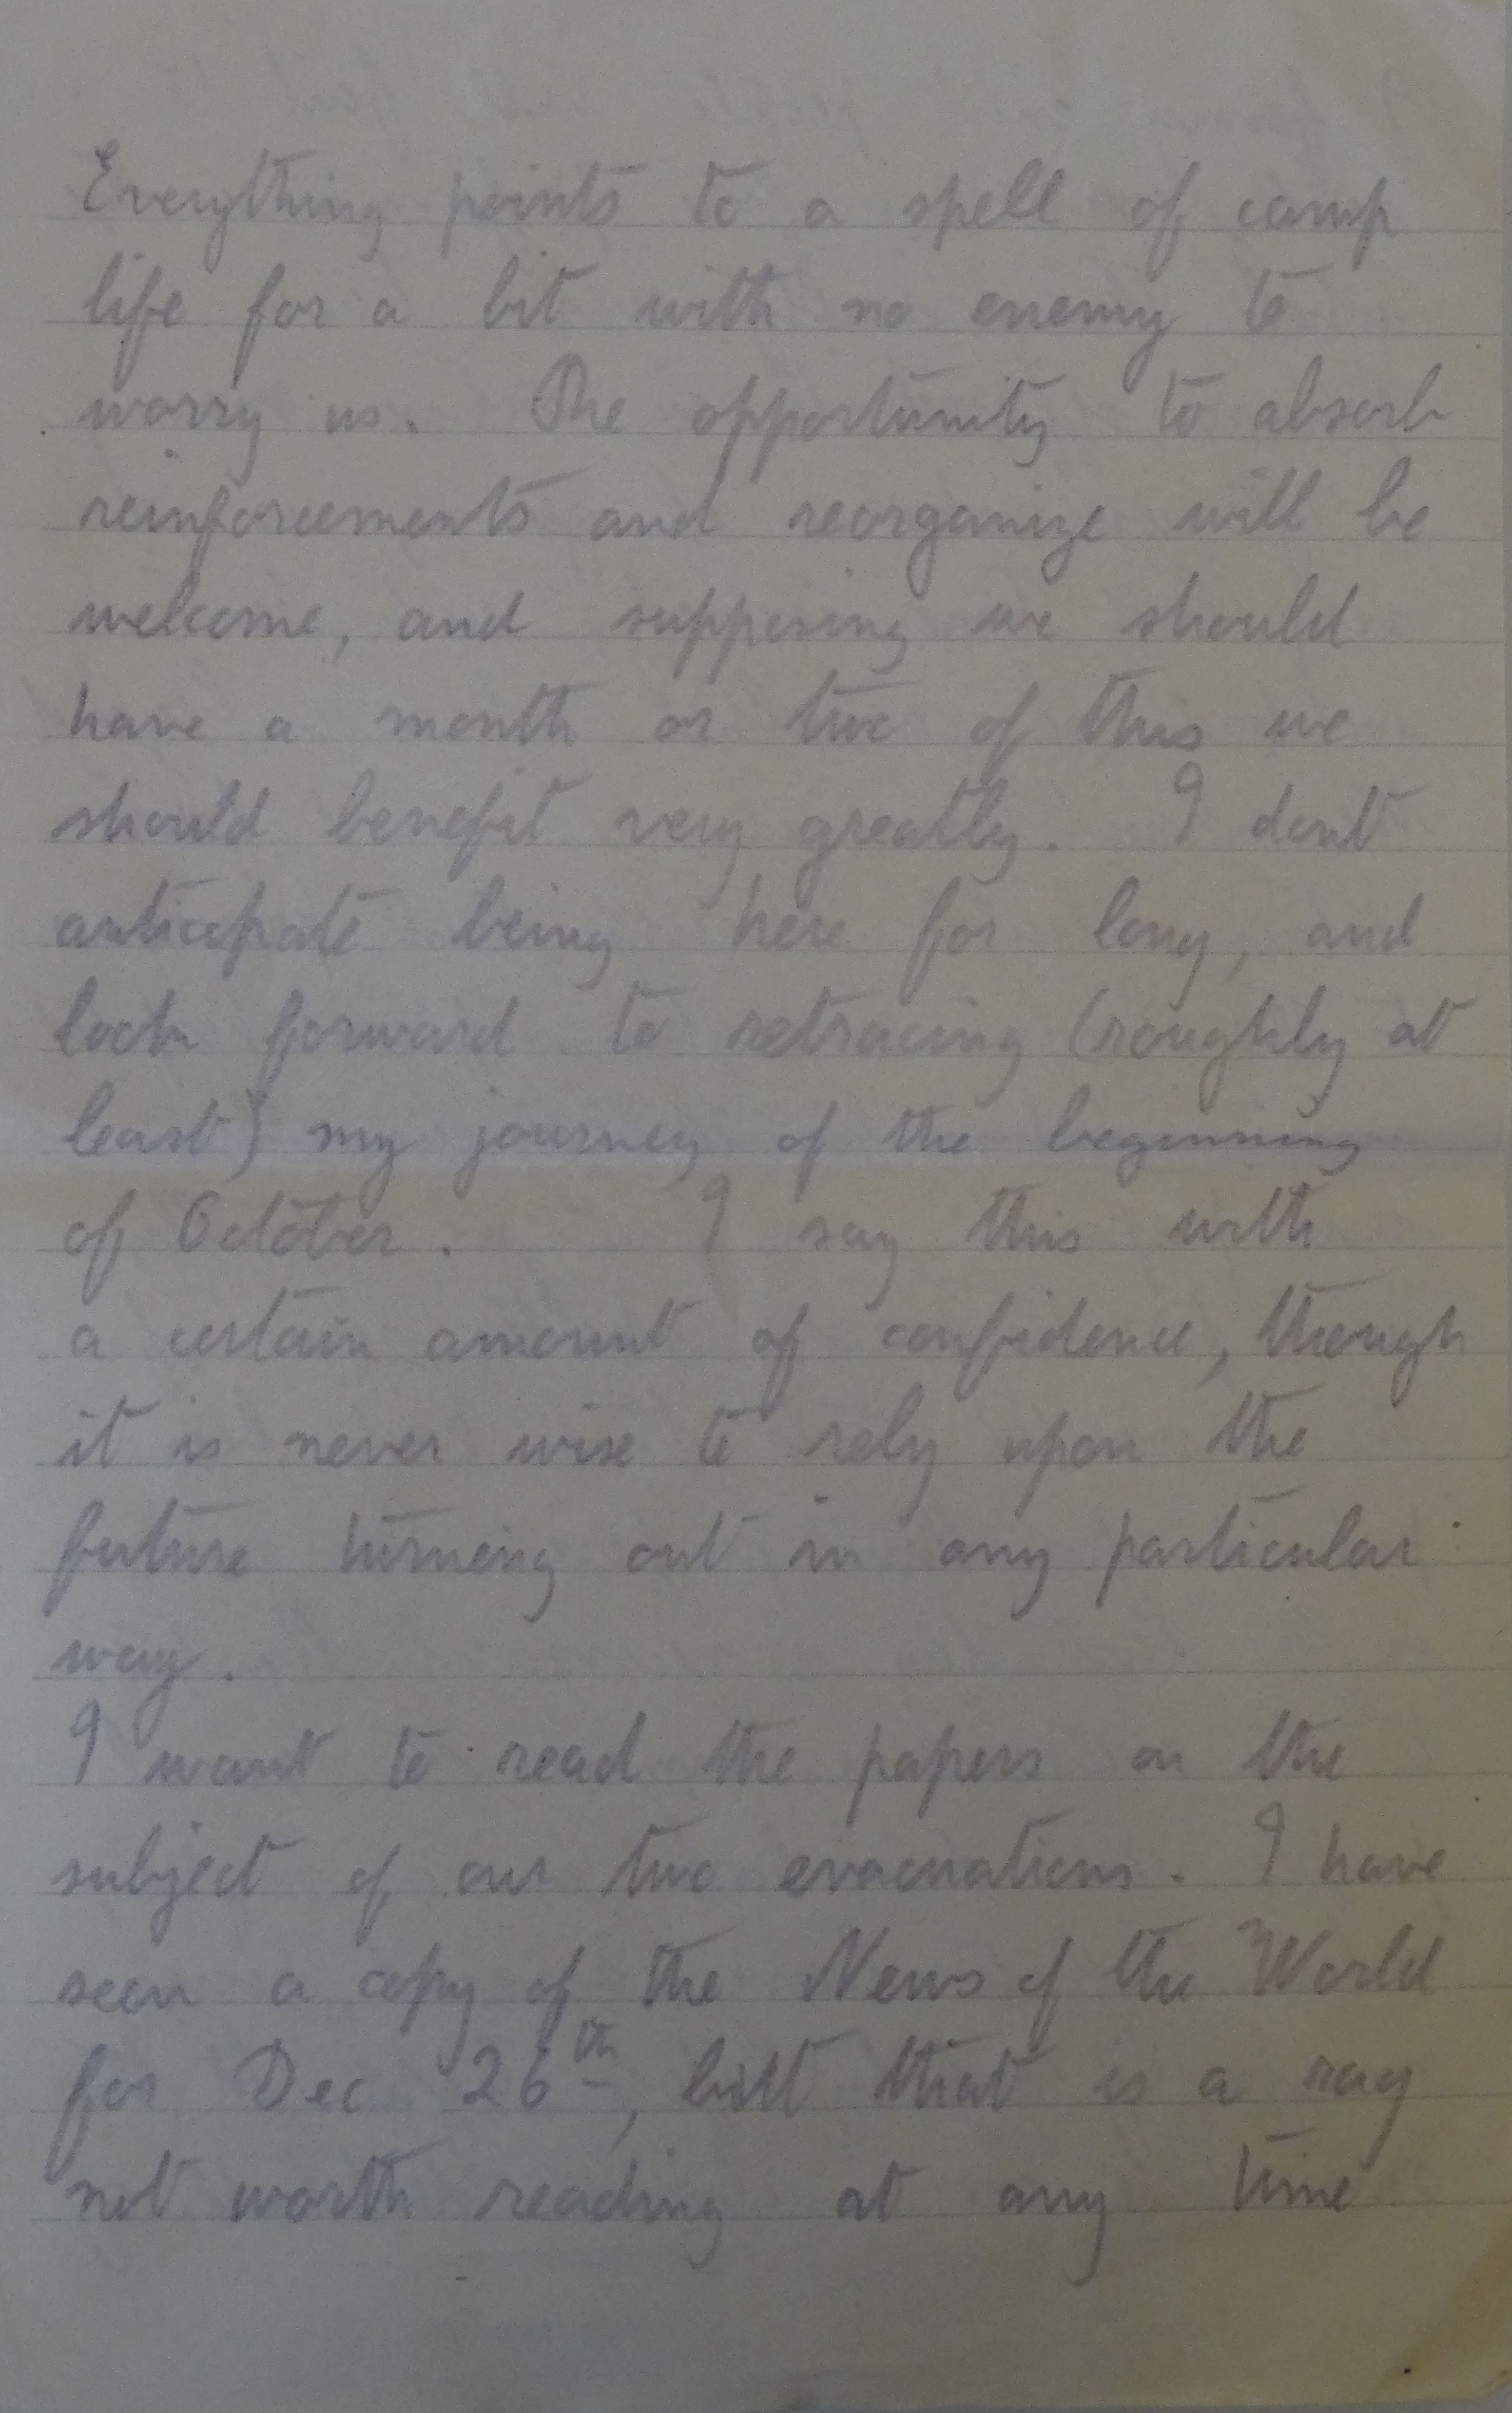 Everything points to a spell of camp
life for a bit with no enemy to
worry us. The opportunity to absorb
reinforcements and reorganize will be
welcome, and supposing we should
have a month or two of this we
should benefit very greatly. I dont
anticipate being here for long, and
look forward to retracing (roughly at
least) my journey of the beginning
of October. I say this with
a certain amount of confidence, though
it is never wise to rely upon the
future turning out in any particular
way.
I want to read the papers on the
subject of our two evacuations. I have
seen a copy of the News of the World
for Dec 26th, but that is a rag
not worth reading at any time